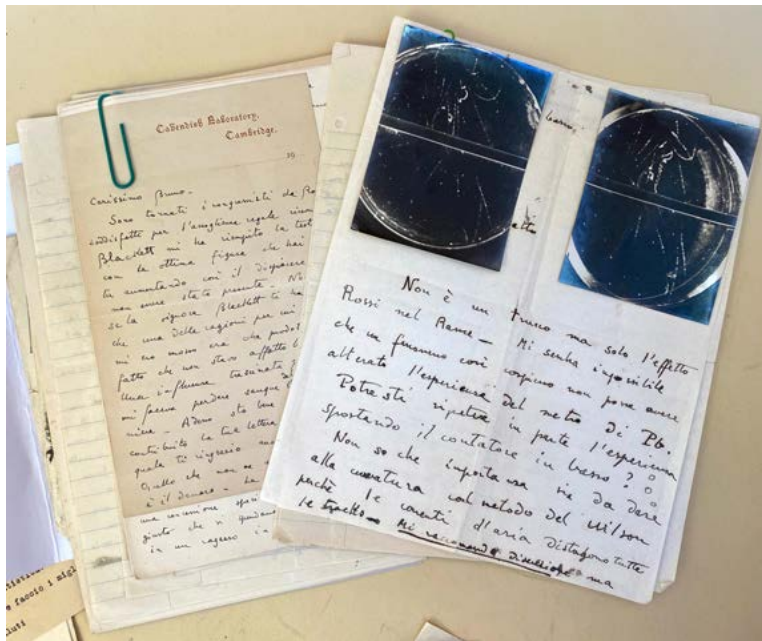 Cavendish Laboratory.
Cambridge.
19
Carissimo Bruno -
Sono tornati i congressisti da Ro
soddisfatti per l'accoglienza regale
Blackett mi ha riempito la test
con la ottima figura che hai
tu aumentando così il dispiacere
non essere stato presente. No
se la signora Blackett ti ha
che una delle ragioni per cui
mi ero mosso era che
fatto che non stavo affatto b
Una influenza trascinata
mi faceva perdere sangue
Adesso sto bene
contribuito la tua lettera
quale ti ringrazio
Quello che non
è il denaro - Le
una
giusto che si
in un ragazzo in
Non è un trucco ma solo l'effetto
Rossi nel Rame - Mi sembra impossibile
che un fenomeno così cospicuo non possa avere
alterato l'esperienza del metro di Pb.
Potresti ripetere in parte l'esperienza
spostando il contatore in basso ? ? ?
Non so che importanza sia da dare
alla curvatura col metodo del Wilson
perchè le correnti d'aria distorgono tutte
le traette - Mi raccomando discrezione ma
e faccio i migl
luti